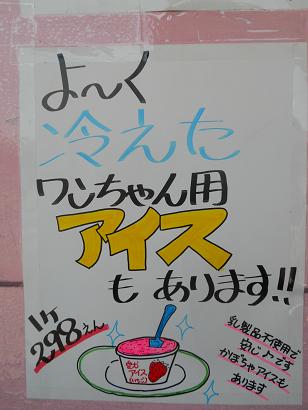 よ〜く
冷えた
ワンちゃん用
アイス
も あります!!
1ヶ
298えん
乳製品不使用で
安心です
かぼちゃアイスも
あります
アイス